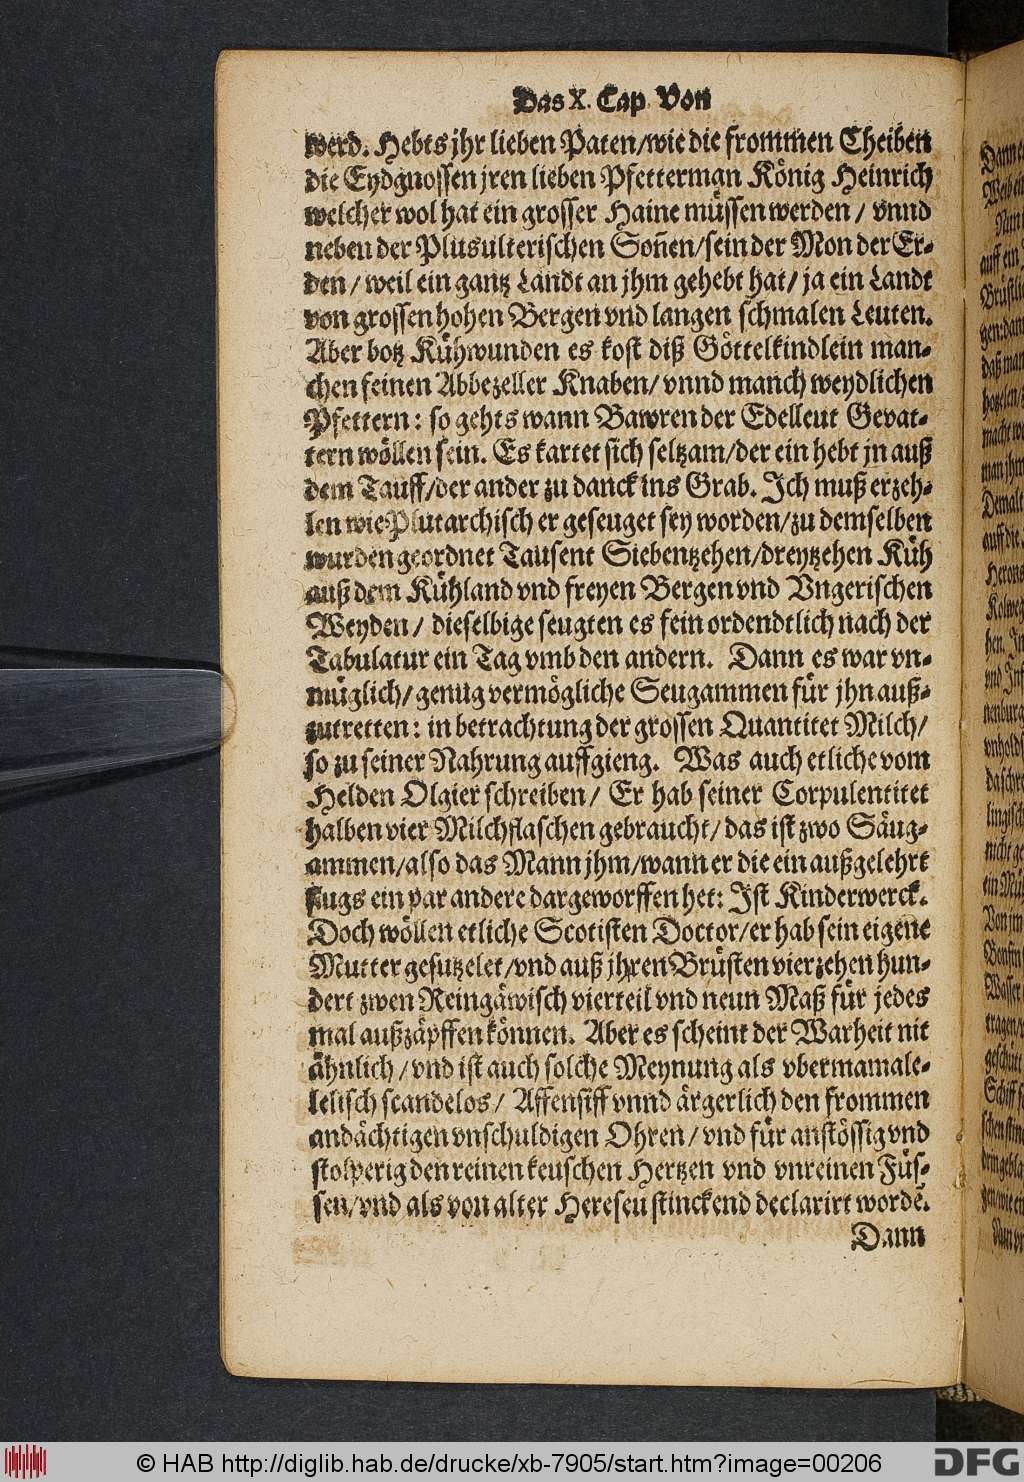 Das X. Cap. Von
werd. Hebts jhr lieben Paten/wie die frommen Theiben
die Eydgnossen jren lieben Pfetterman König Heinrich
welcher wol hat ein grosser Haine müssen werden / vnnd
neben der Plusulterischen Soñen/sein der Mon der Er-
den / weil ein gantz Landt an jhm gehebt hat/ ja ein Landt
von grossen hohen Bergen vnd langen schmalen Leuten.
Aber botz Kühwunden es kost diß Göttelkindlein man-
chen feinen Abbezeller Knaben/ vnnd manch weydlichen
Pfettern: so gehts wann Bawren der Edelleut Gevat-
tern wöllen sein. Es kartet sich seltzam/der ein hebt jn auß
dem Tauff/der ander zu danck ins Grab. Ich muß erzeh-
len wie Plutarchisch er geseuget sey worden/zu demselben
wurden geordnet Tausent Siebentzehen/dreytzehen Küh
auß dem Kühland vnd freyen Bergen vnd Vngerischen
Weyden / dieselbige seugten es fein ordendtlich nach der
Tabulatur ein Tag vmb den andern. Dann es war vn-
müglich/ genug vermögliche Seugammen für jhn auß-
zutretten: in betrachtung der grossen Quantitet Milch/
so zu seiner Nahrung auffgieng. Was auch etliche vom
Helden Olgier schreiben / Er hab seiner Corpulentitet
halben vier Milchflaschen gebraucht/ das ist zwo Säug-
ammen/also das Mann jhm/wann er die ein außgelehrt
flugs ein par andere dargeworffen het: Ist Kinderwerck.
Doch wöllen etliche Scotisten Doctor/er hab sein eigene
Mutter gesutzelet/vnd auß jhren Brüsten vierzehen hun-
dert zwen Reingäwisch vierteil vnd neun Maß für jedes
mal außzäpffen können. Aber es scheint der Warheit nit
ähnlich / vnd ist auch solche Meynung als vbermamale-
lelisch scandelos / Affensiff vnnd ärgerlich den frommen
andächtigen vnschuldigen Ohren / vnd für anstössig vnd
stolperig den reinen keuschen Hertzen vnd vnreinen Füs-
sen/vnd als von alter Heresey stinckend declarirt wordē.
Dann
© HAB http://diglib.hab.de/drucke/xb-7905/start.htm?image=00206
DFG